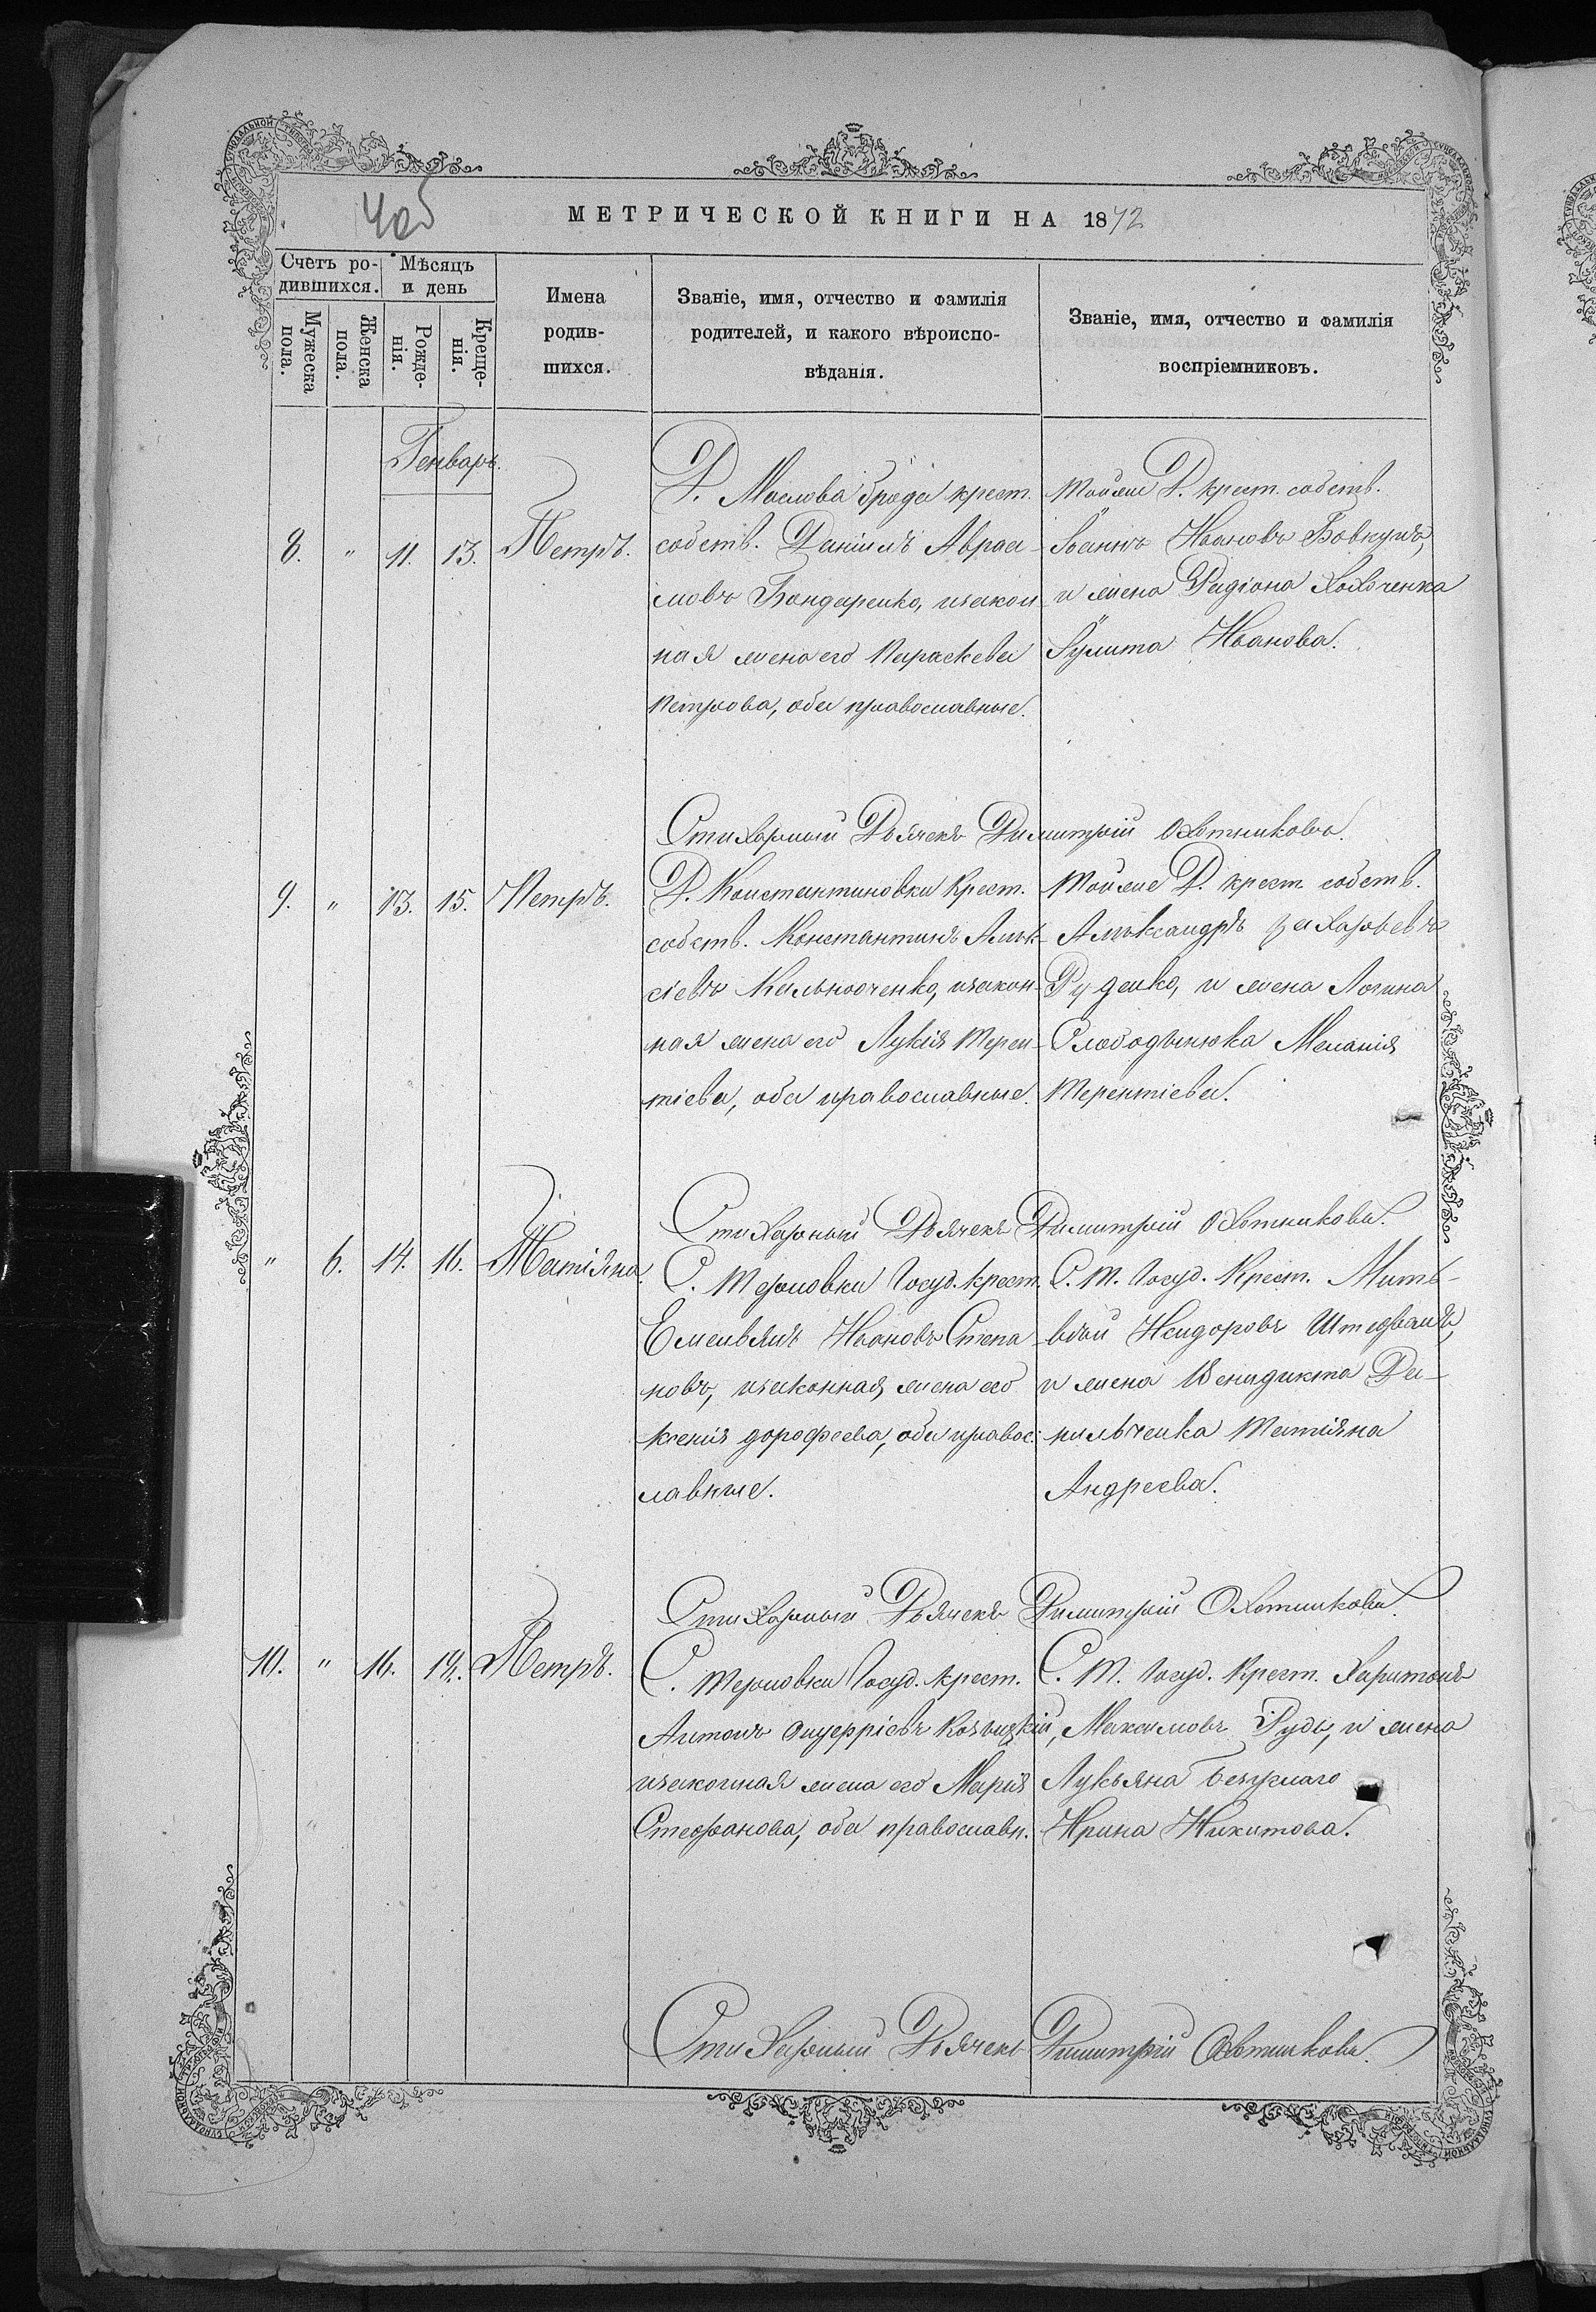 4об
МЕТРИЧЕСКОЙ КНИГИ НА 1872
Счетъ ро-
дившихся.
Мѣсяцъ
и день
Мужеска
пола.
Женска
пола.
Рожде-
нія.
Креще-
нія.
Имена
родив-
шихся.
Званіе, имя, отчество и фамилія
родителей, и какого вѣроиспо-
вѣданія.
Званіе, имя, отчество и фамилія
воспріемниковъ.
Генварь.
8. " 11. 13. Петръ.
Д. Маслова брода крест.
собств. Даніилъ Авраа-
мовъ Бондаренко, изакон-
ная жена его Параскева
Петрова, оба православные.
Тойже Д. крест. собств.
Іоаннъ Ивановъ Бовкунъ,
и жена Радіона Хохвченка
Іулита Иванова.
Стихарный Дьячекъ Димитрій Охотниковъ.
9. " 13. 15. Петръ.
Д. Константиновки Крест.
собств. Константинъ Алек-
сіевъ Кальниченко, изакон-
ная жена его Лукія Терен-
тіева, оба православные.
Тойже Д. крест. собств.
Александръ Захарьевъ
Руденко, и жена Логина
Слободянюка Меланія
Терентіева.
Стихарный Дьячекъ Димитрій Охотниковъ.
" 6. 14. 16. Татіяна.
С. Терновки Госуд. крест.
Емельянъ Ивановъ Степа-
новъ, изаконная, жена его
Ксенія Дорофеева, оба правос:
лавные.
С. Т. Госуд. Крест. Мат-
вѣй Исидоровъ Штефанъ,
и жена Венидикта Да-
нильченка Татіяна
Андреева.
Стихарный Дьячекъ Димитрій Охотниковъ.
10. " 16. 19. Петръ.
С. Терновки Госуд. крест.
Антонъ Онуфріевъ Козицкій,
изаконная жена его Марія
Стефанова, оба православн.
С. Т. Госуд. Крест. Харитонъ
Максимовъ Рудь, и жена
Лукьяна Безуглаго
Ирина Никитова.
Стихарный Дьячекъ Димитрій Охотниковъ.